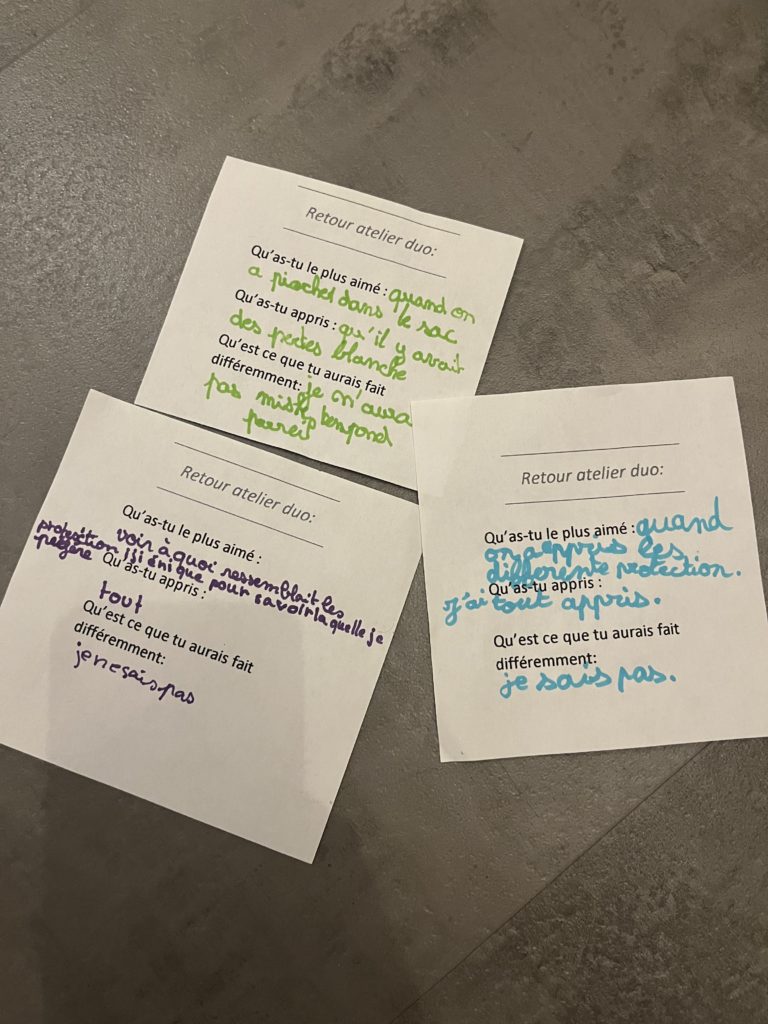 Retour atelier duo:
Qu'as-tu le plus aimé : quand on
a piocher dans le sac
Qu'as-tu appris : qu'il y avait
des pertes blanche
Qu'est ce que tu aurais fait
différemment: je n'aura
pas
pareis
Retour atelier duo:
Qu'as-tu le plus aimé :
voir à quoi ressemblait les
protection igiénique pour savoir laquelle je
préfère
Qu'as-tu appris :
tout
Qu'est ce que tu aurais fait
différemment:
je ne sais pas
Retour atelier duo:
Qu'as-tu le plus aimé : quand
on a appris les
différente protection.
Qu'as-tu appris :
J'ai tout appris.
Qu'est ce que tu aurais fait
différemment:
je sais pas.